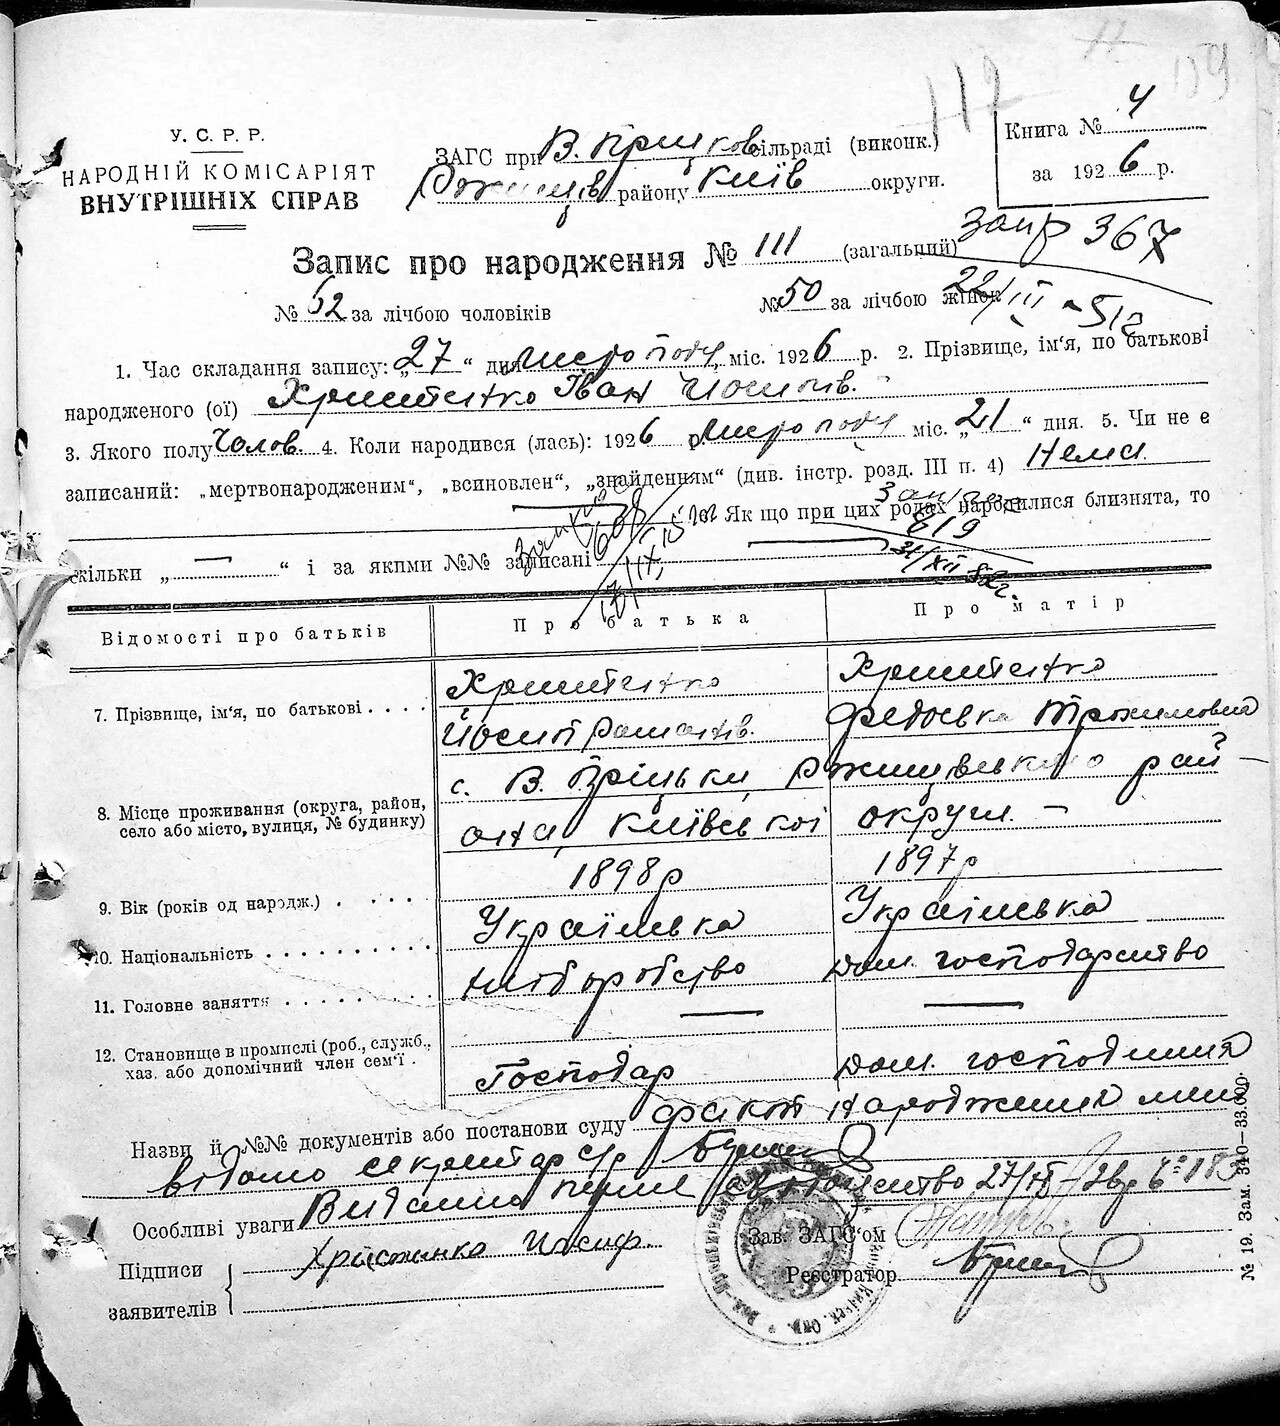 117
159
У. С. Р. Р.
НАРОДНІЙ КОМІСАРІЯТ
ВНУТРІШНІХ СПРАВ
ЗАГС при В. Прицков сільраді (виконк.)
Ржищів району Київ округи.
Книга № 4
за 1926 р.
Запис про народження № 111 (загальний)
запр 367
22/III - 51г
№ 62 за лічбою чоловіків № 50 за лічбою жінок
1. Час складання запису: „27“ дня листопаду міс. 1926 р. 2. Прізвище, ім'я, по батькові
народженого (ої) Христенко Іван Йосипів.
3. Якого полу Чолов. 4. Коли народився (лась): 1926 листопаду міс. „21“ дня. 5. Чи не є
записаний: „мертвонародженим“, „всиновлен“, „знайденням“ (див. інстр. розд. III п. 4) Нема
6. Як що при цих родах народилися близнята, то
скільки „ — “ і за якими №№ записані —
619
31/XII 52г.
608
Відомості про батьків Про батька Про матір
7. Прізвище, ім'я, по батькові . . . . Христенко Христенко
Йосип Романів. Федоська Трохимовна
8. Місце проживання (округа, район, село або місто, вулиця, № будинку) с. В. Пріцьки, Ржищівського рай-
она, Київської округи. —
9. Вік (років од народж.) . . . . 1898р 1897р
10. Національність . . . . . . . . Українська Українська
11. Головне заняття . . . . . . . . хліборобство дом. господарство
12. Становище в промислі (роб., служб., хаз. або допомічний член сем'ї . — —
Господар дом. господиня
Назви й №№ документів або постанови суду факт народження мині
відомо секретар с/р
Особливі уваги Видано перше свідоцтво
Підписи заявителів Христинко Иосиф.
Зав. ЗАГС'ом
Реєстратор
№ 19. Зам. 340—33.000.